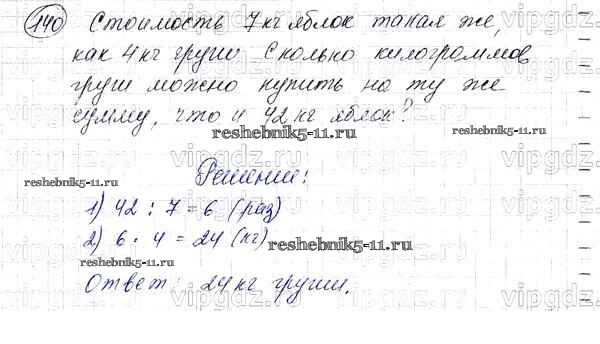 140 Стоимость 7 кг яблок такая же,
как 4 кг груши. Сколько килограммов
груш можно купить на ту же
сумму, что и 42 кг яблок?
reshebnik5-11.ru
reshebnik5-11.ru
vipgdz.ru vipgdz.ru vipgdz.ru
reshebnik5-11.ru
Решение:
1) 42 : 7 = 6 (раз)
2) 6 · 4 = 24 (кг)
reshebnik5-11.ru
reshebnik5-11.ru
Ответ: 24 кг груши.
vipgdz.ru vipgdz.ru vipgdz.ru